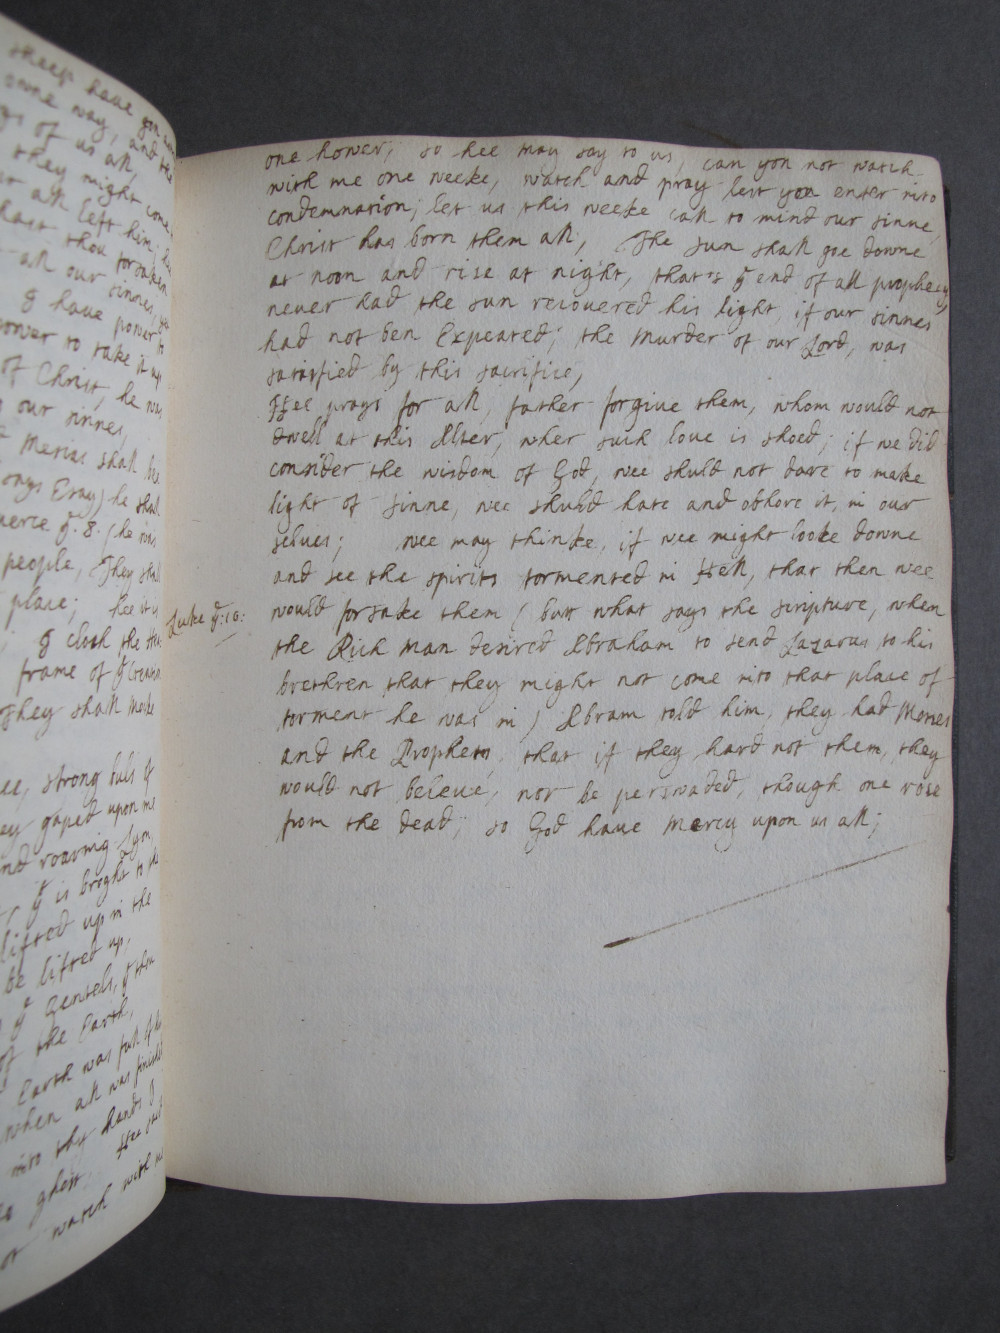 sheep have gon
owne way, and the
of us all,
they might come
all left him;
hast thou forsaken
all our sinnes,
& have power to
power to take it up
of Christ, he was
our sinnes,
Mesias shall be
he shall
ye. 8. (he was
people, They shall
place; hee is
& cloth the
frame of ye Creation
They shall make
strong buls of
gaped upon me
and roaring Lyon
is broght to the
lifted up in the
be lifted up,
ye Gentels, & then
of the Earth,
Earth was full of
when all was finished
into thy hands I
ghost, Hee
watch with me
one hower; so hee may say to us, can you not watch
with me one weeke, watch and pray lest you enter into
condemnation; let us this weeke call to mind our sinne,
Christ has born them all, The sun shall goe downe
at noon and rise at night, that's ye end of all prophecy
never had the sun recouered his light, if our sinnes
had not ben Expeated; the murder of our Lord, was
satisfied by this sacrifice,
Hee prays for all, father forgiue them, whom would not
dwell at this Alter, wher such loue is shoed; if we did
consider the wisdom of God, wee shuld not dare to make
light of sinne, wee shuld hate and obhore it, in our
selues; wee may thinke, if wee might looke downe
and see the spirits tormented in Hell, that then wee
Luke ye: 16: would forsake them (butt what says the scripture, when
the Rich man desired Abraham to send Lazarus to his
brethren that they might not come into that place of
torment he was in) Abram told him, they had Moses
and the Prophets, that if they hard not them, they
would not beleue, nor be perswaded, though one rose
from the dead; so God haue Mercy upon us all;